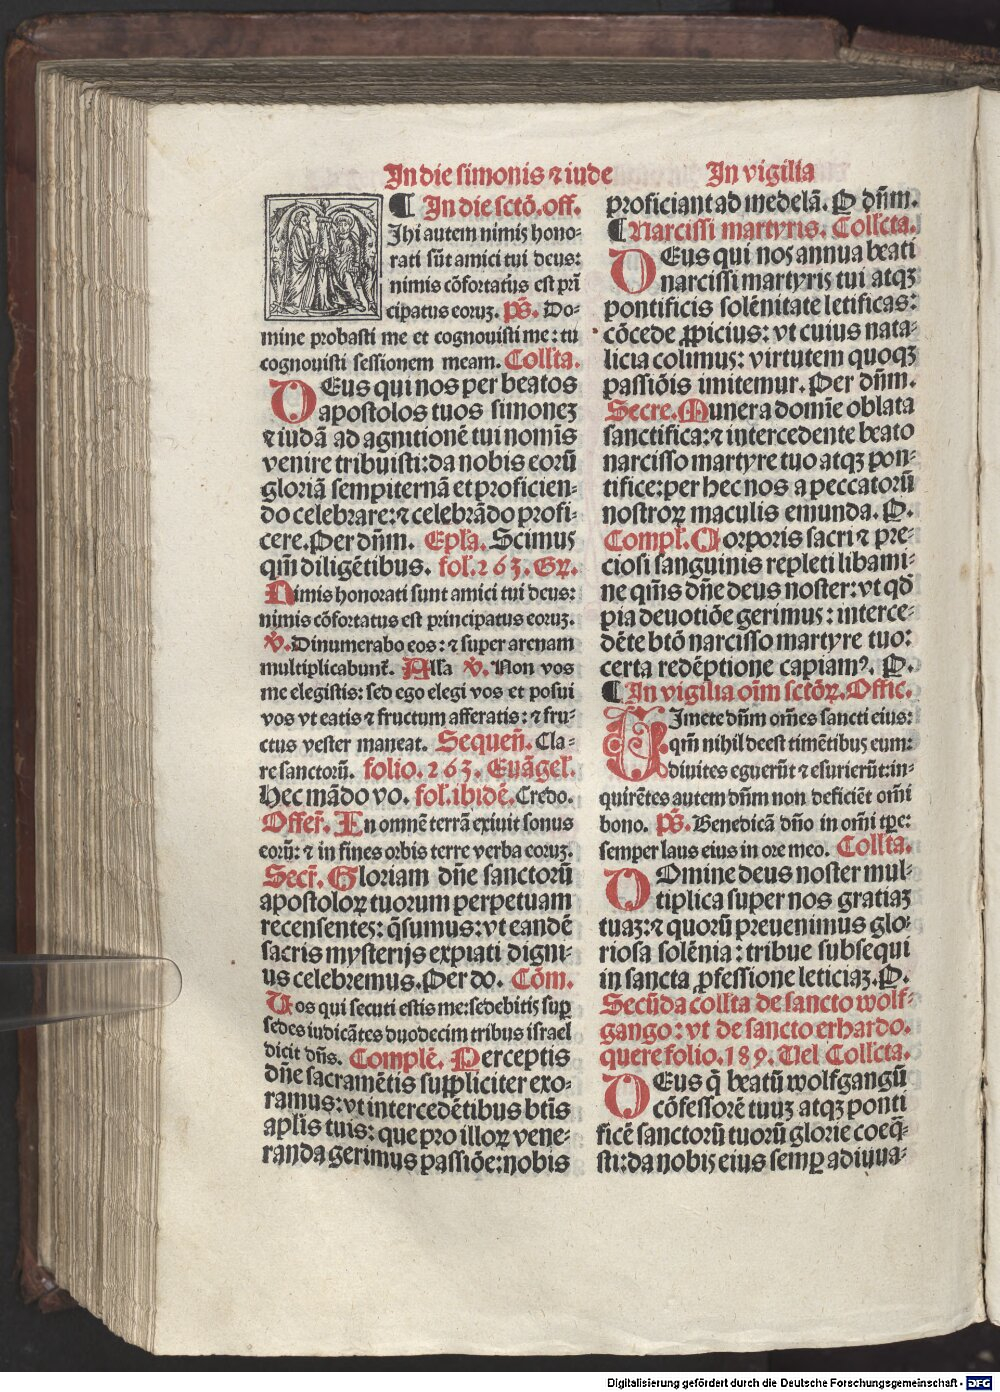 In die simonis ⁊ iude
In vigilia
¶ In die sctō. off.
Jhi autem nimis hono-
rati sūt amici tui deus:
nimis cōfortatus est prī
cipatus eoruꝫ. p̄s. Do-
mine probasti me et cognouisti me: tu
cognouisti sessionem meam. Coll'cta.
DEus qui nos per beatos
apostolos tuos simoneꝫ
⁊ iudā ad agnitionē tui nomīs
venire tribuisti: da nobis eorū
gloriā sempiternā et proficien-
do celebrare: ⁊ celebrādo profi-
cere. Per dn̄m. Ep̄la. Scimus
qm̄ diligētibus. fol. 263. Gꝛ.
Nimis honorati sunt amici tui deus:
nimis cōfortatus est principatus eoruꝫ.
℣. Dinumerabo eos: ⁊ super arenam
multiplicabunt̄. Alla ℣. Non vos
me elegistis: sed ego elegi vos et posui
vos vt eatis ⁊ fructum afferatis: ⁊ fru-
ctus vester maneat. Sequen̄. Cla-
re sanctorū. folio. 263. Euāgel.
Hec mādo vo. fol. ibidē. Credo.
Offer̄. In omnē terrā exiuit sonus
eorū: ⁊ in fines orbis terre verba eoruꝫ.
Secr̄. Gloriam dn̄e sanctorū
apostoloꝝ tuorum perpetuam
recensentes: q̄sumus: vt eandē
sacris mysterijs expiati digni-
us celebremus. Per do. Cōm.
Uos qui secuti estis me: sedebitis suꝑ
sedes iudicātes duodecim tribus israel
dicit dn̄s. Complē. Perceptis
dn̄e sacramētis suppliciter exo-
ramus: vt intercedētibus btīs
aplīs tuis: que pro illoꝝ vene-
randa gerimus passiōe: nobis
proficiant ad medelā. P dn̄m.
¶ Narcissi martyris. Coll'cta.
DEus qui nos annua beati
narcissi martyris tui atqꝫ
pontificis solēnitate letificas:
cōcede ꝓpicius: vt cuius nata-
licia colimus: virtutem quoqꝫ
passiōis imitemur. Per dn̄m.
Secre. Munera domīe oblata
sanctifica: ⁊ intercedente beato
narcisso martyre tuo atqꝫ pon-
tifice: per hec nos a peccatorū
nostroꝝ maculis emunda. P.
Compl'. Corporis sacri ⁊ pre-
ciosi sanguinis repleti libami-
ne qm̄s dn̄e deus noster: vt qd̄
pia deuotiōe gerimus: interce-
dēte btō narcisso martyre tuo:
certa redēptione capiamꝰ. P.
¶ In vigilia oīm sctōꝝ. Offic.
TJmete dn̄m om̄es sancti eius:
qm̄ nihil deest timētibus eum:
diuites eguerūt ⁊ esurierūt: in-
quirētes autem dn̄m non deficiēt om̄i
bono. p̄s. Benedicā dn̄o in om̄i tp̄e:
semper laus eius in ore meo. Coll'ta.
DOmine deus noster mul-
tiplica super nos gratiaꝫ
tuaꝫ: ⁊ quorū preuenimus glo-
riosa solēnia: tribue subsequi
in sancta ꝓfessione leticiaꝫ. P.
Secūda coll'ta de sancto wolf-
gango: vt de sancto erhardo.
quere folio. 189. Uel Coll'cta.
DEus q̄ beatū wolfgangū
cōfessorē tuuꝫ atqꝫ ponti
ficē sanctorū tuorū glorie coeq̄-
sti: da nobis eius semꝑ adiuua-
Digitalisierung gefördert durch die Deutsche Forschungsgemeinschaft - DFG